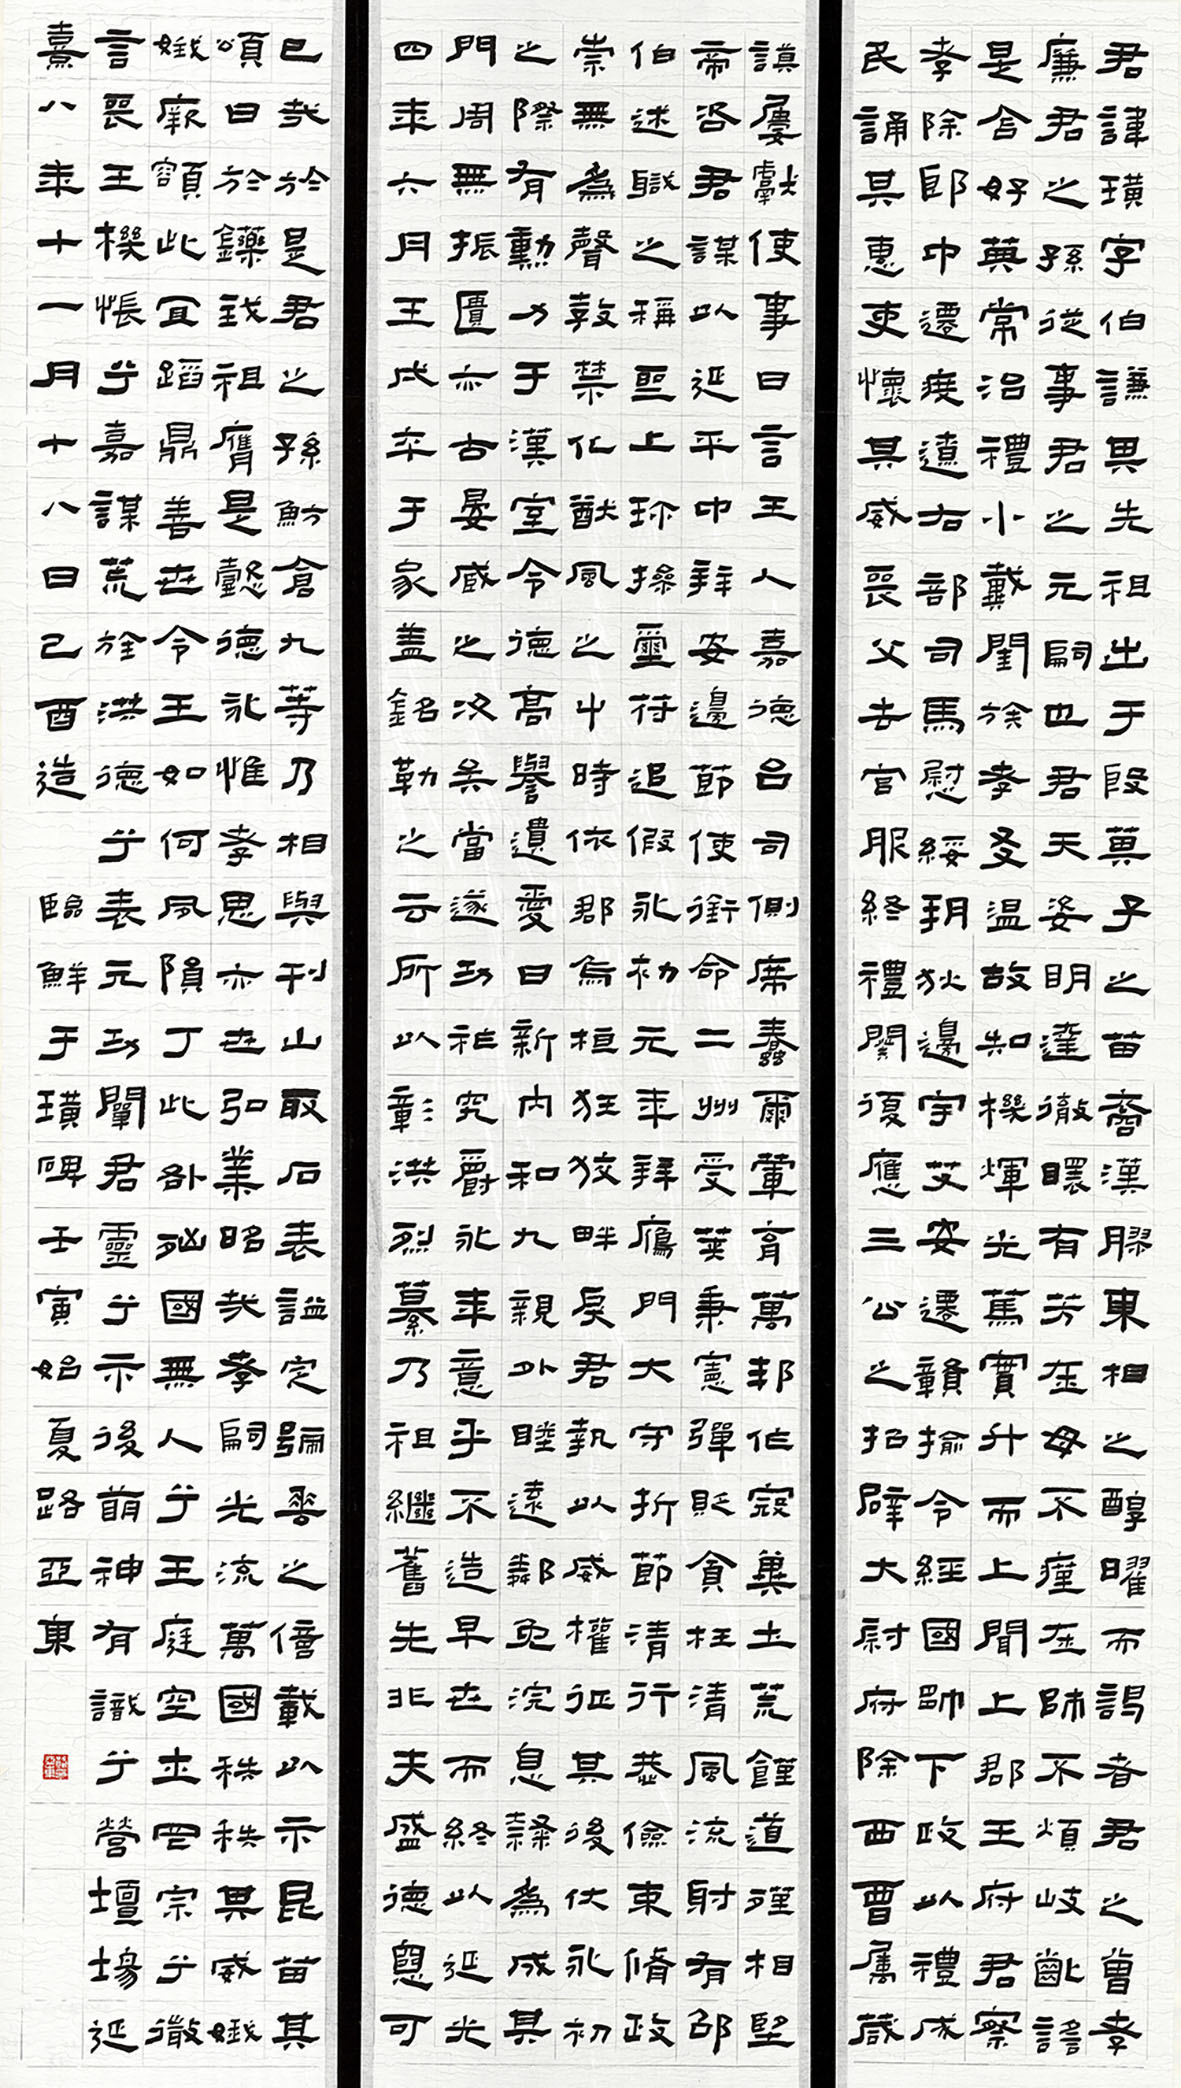 君諱璜字伯謙其先祖出于殷箕子之苗裔漢膠東相之醇曜而謁者君之曾孝
廉君之孫從事君之元嗣也君天姿明達徹瞏有芳在母不瘇在師不煩岐齔謠
是含好典常治禮小戴閨族孝友溫故知機煇光篤實升而上聞上郡王府君察
孝除郎中遷度遼右部司馬慰綏朔狄邊宇艾安遷贛揄令經國帥下政以禮成
民誦其惠吏懷其威喪父去官服終禮闋復應三公之招辟大尉府除西曹屬歲
謨屢獻使事日言王人嘉德呂司側席蠢爾葷育萬邦作寇冀土荒饉道殣相望
帝咨君謀以延平中拜安邊節使銜命二州受莢秉憲彈貶貪枉清風流射有邵
伯述職之稱亘上珍操璽符追假永初元年拜鴈門大守折節清行恭儉束脩政
崇無爲聲敦禁化猷風之中時依郡烏桓狂狡畔戾君執以威權征其後伏永初
之際有勳力于漢室令德高譽遺愛日新內和九親外睦遠鄰免浣息隸爲成其
門周無振匱亦古晏臧之次矣當遂功祚究爵永年意乎不造早世而終以延光
四年六月壬戌卒于家蓋銘勒之云所以彰洪烈纂乃祖繼舊先非夫盛德惡可
已哉於是君之孫魴倉九等乃相與刊山取石表謚定號垂之億載以示昆苗其
頌曰於鑠我祖膺是懿德永惟孝思亦世弘業昭哉孝嗣光流萬國秩秩其威娥
娥厥額此宜蹈鼎善世令王如何夙隕丁此咎殃國無人兮王庭空士罔宗兮微
言喪王機悵兮嘉謀荒旌洪德兮表元功闡君靈兮示後萌神有識兮營壇場延
熹八年十一月十八日己酉造 臨鮮于璜碑壬寅始夏路亞東